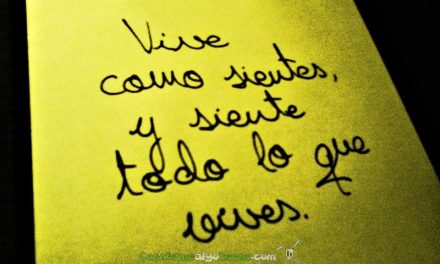 Vive
como sientes,
y siente
todo lo que
vives.
Cuentamealgobueno.com